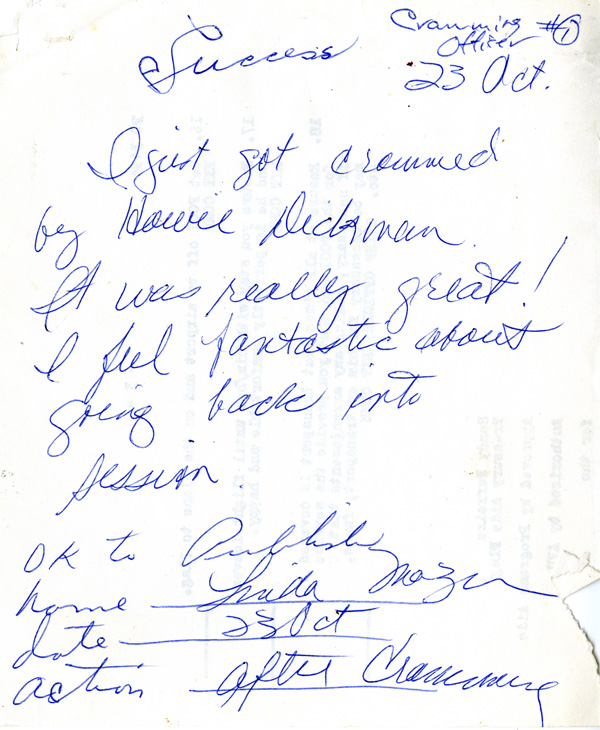 Cramming #1
Officer
Success
23 Oct.
I just got crammed
by Howie Dickman.
It was really great!
I feel fantastic about
going back into
session.
OK to Publish
name Linda
date 23 Oct
action After Cramming